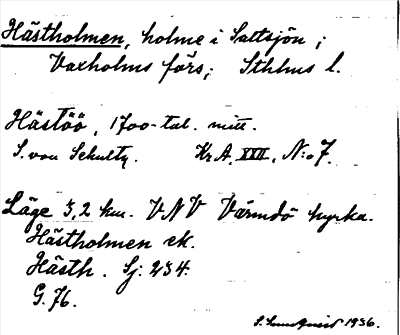 Hästholmen, holme i Saltsjön;
Vaxholms förs; Sthlms l.
Hästöö, 1700-tal. mitt.
S. von Schultz. Kr. A. XVII, N:o 7.
Läge 3,2 km. VNV Värmdö kyrka.
Hästholmen ek.
Hästh. Sj: 234.
G. 76.
S. Sundqvist 1936.